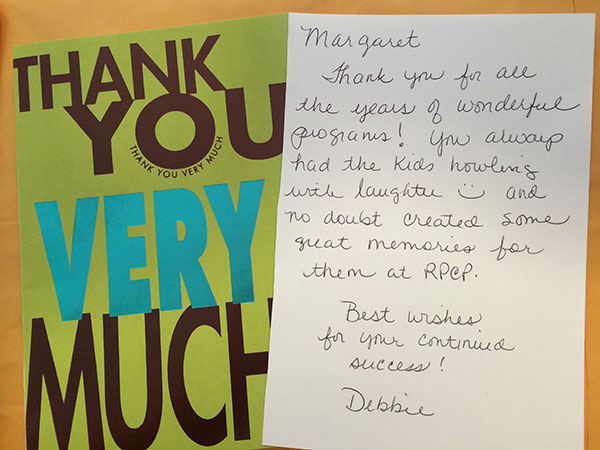 THANK
YOU
THANK YOU VERY MUCH
VERY
MUCH
Margaret
Thank you for all
the years of wonderful
programs! You always
had the kids howling
with laughter and
no doubt created some
great memories for
them at RPCP.
Best wishes
for your continued
success!
Debbie